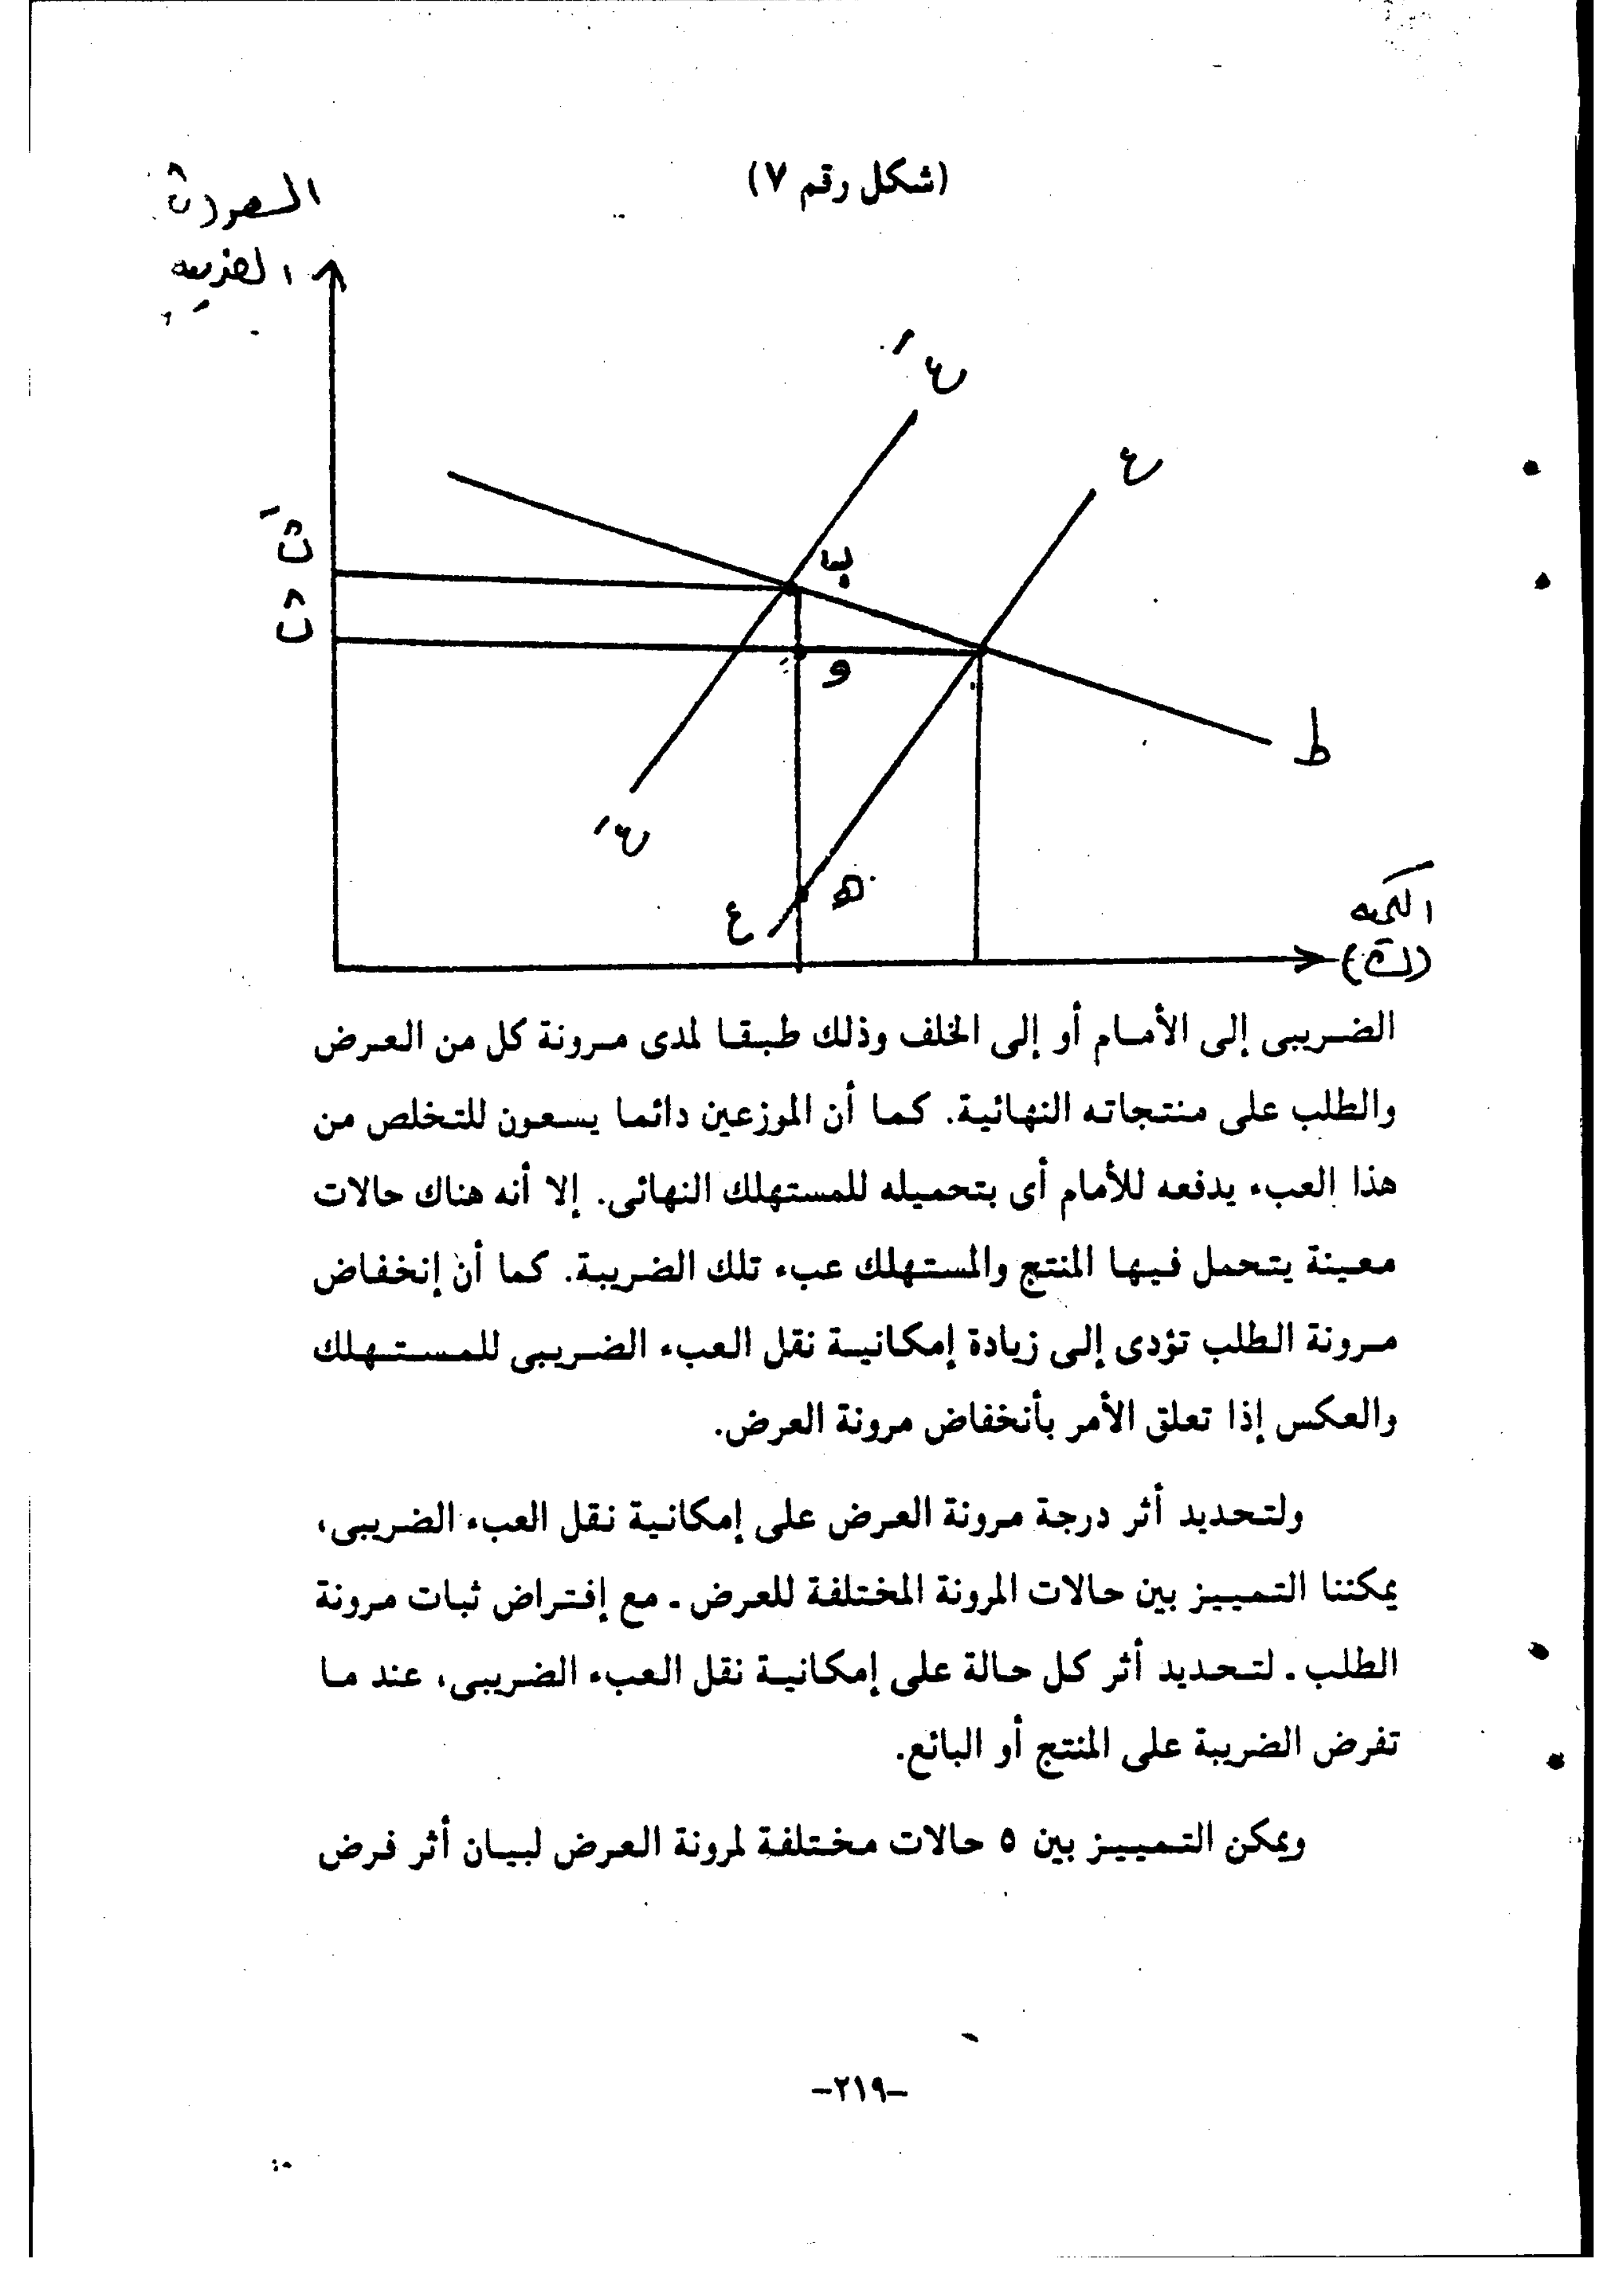 (شكل رقم ٧)
السعر (ث)
الضريبة
عَ
ع
ثَ
ب
ث
و
ط
عَ
ه
ع
الكمية
(ك)
الضريبى إلى الأمام أو إلى الخلف وذلك طبقا لمدى مرونة كل من العرض
والطلب على منتجاته النهائية. كما أن الموزعين دائما يسعون للتخلص من
هذا العبء يدفعه للأمام أى بتحميله للمستهلك النهائى. إلا أنه هناك حالات
معينة يتحمل فيها المنتج والمستهلك عبء تلك الضريبة. كما أن إنخفاض
مرونة الطلب تؤدى إلى زيادة إمكانية نقل العبء الضريبى للمستهلك
والعكس إذا تعلق الأمر بأنخفاض مرونة العرض.
ولتحديد أثر درجة مرونة العرض على إمكانية نقل العبء الضريبى،
يمكننا التمييز بين حالات المرونة المختلفة للعرض - مع إفتراض ثبات مرونة
الطلب - لتحديد أثر كل حالة على إمكانية نقل العبء الضريبى، عند ما
تفرض الضريبة على المنتج أو البائع.
ويمكن التمييز بين ٥ حالات مختلفة لمرونة العرض لبيان أثر فرض
-٢١٩-